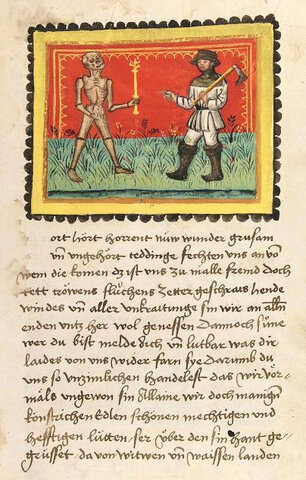 ort hört horrent nüw wunder grusam
vn̄ vngehört teddinge fechten vns an vō
wem die komen dz ist vns zu malle fremd doch
tröwens fluchens zetter geschrais hende
windes vn̄ aller vnkraitunge sin wir an alln̄
enden vntz her wol genessen Dannoch süne
wer du bist melde dich vn̄ lutbar was dir
laides von vns wider farn sye Darumb du
vns so vnzimlichen handelest das wir vor-
mǎls vngewon sin Allaine wir doch manigen̄
künstrichen Edlen schönen mechtigen vnd
hefftigen lütten ser über den sin hant ge-
grüsset da von witwen vn̄ waissen landen